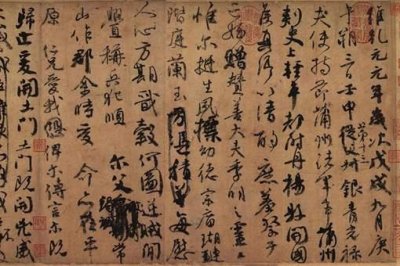 維乾元元年歲次戊戌九月庚
午朔三日壬申第十三叔銀青光祿
夫使持節蒲州諸軍事蒲州
刺史上輕車都尉丹楊縣開國
侯真卿以清酌庶羞祭于
亡姪贈贊善大夫季明之靈曰
惟爾挺生夙標幼德宗廟瑚璉
階庭蘭玉方憑積善每慰
人心方期戩穀何圖逆賊間
釁稱兵犯順爾父常
山作郡余時受命亦在平
原仁兄愛我俾爾傳言爾既
歸止爰開土門土門既開兇威